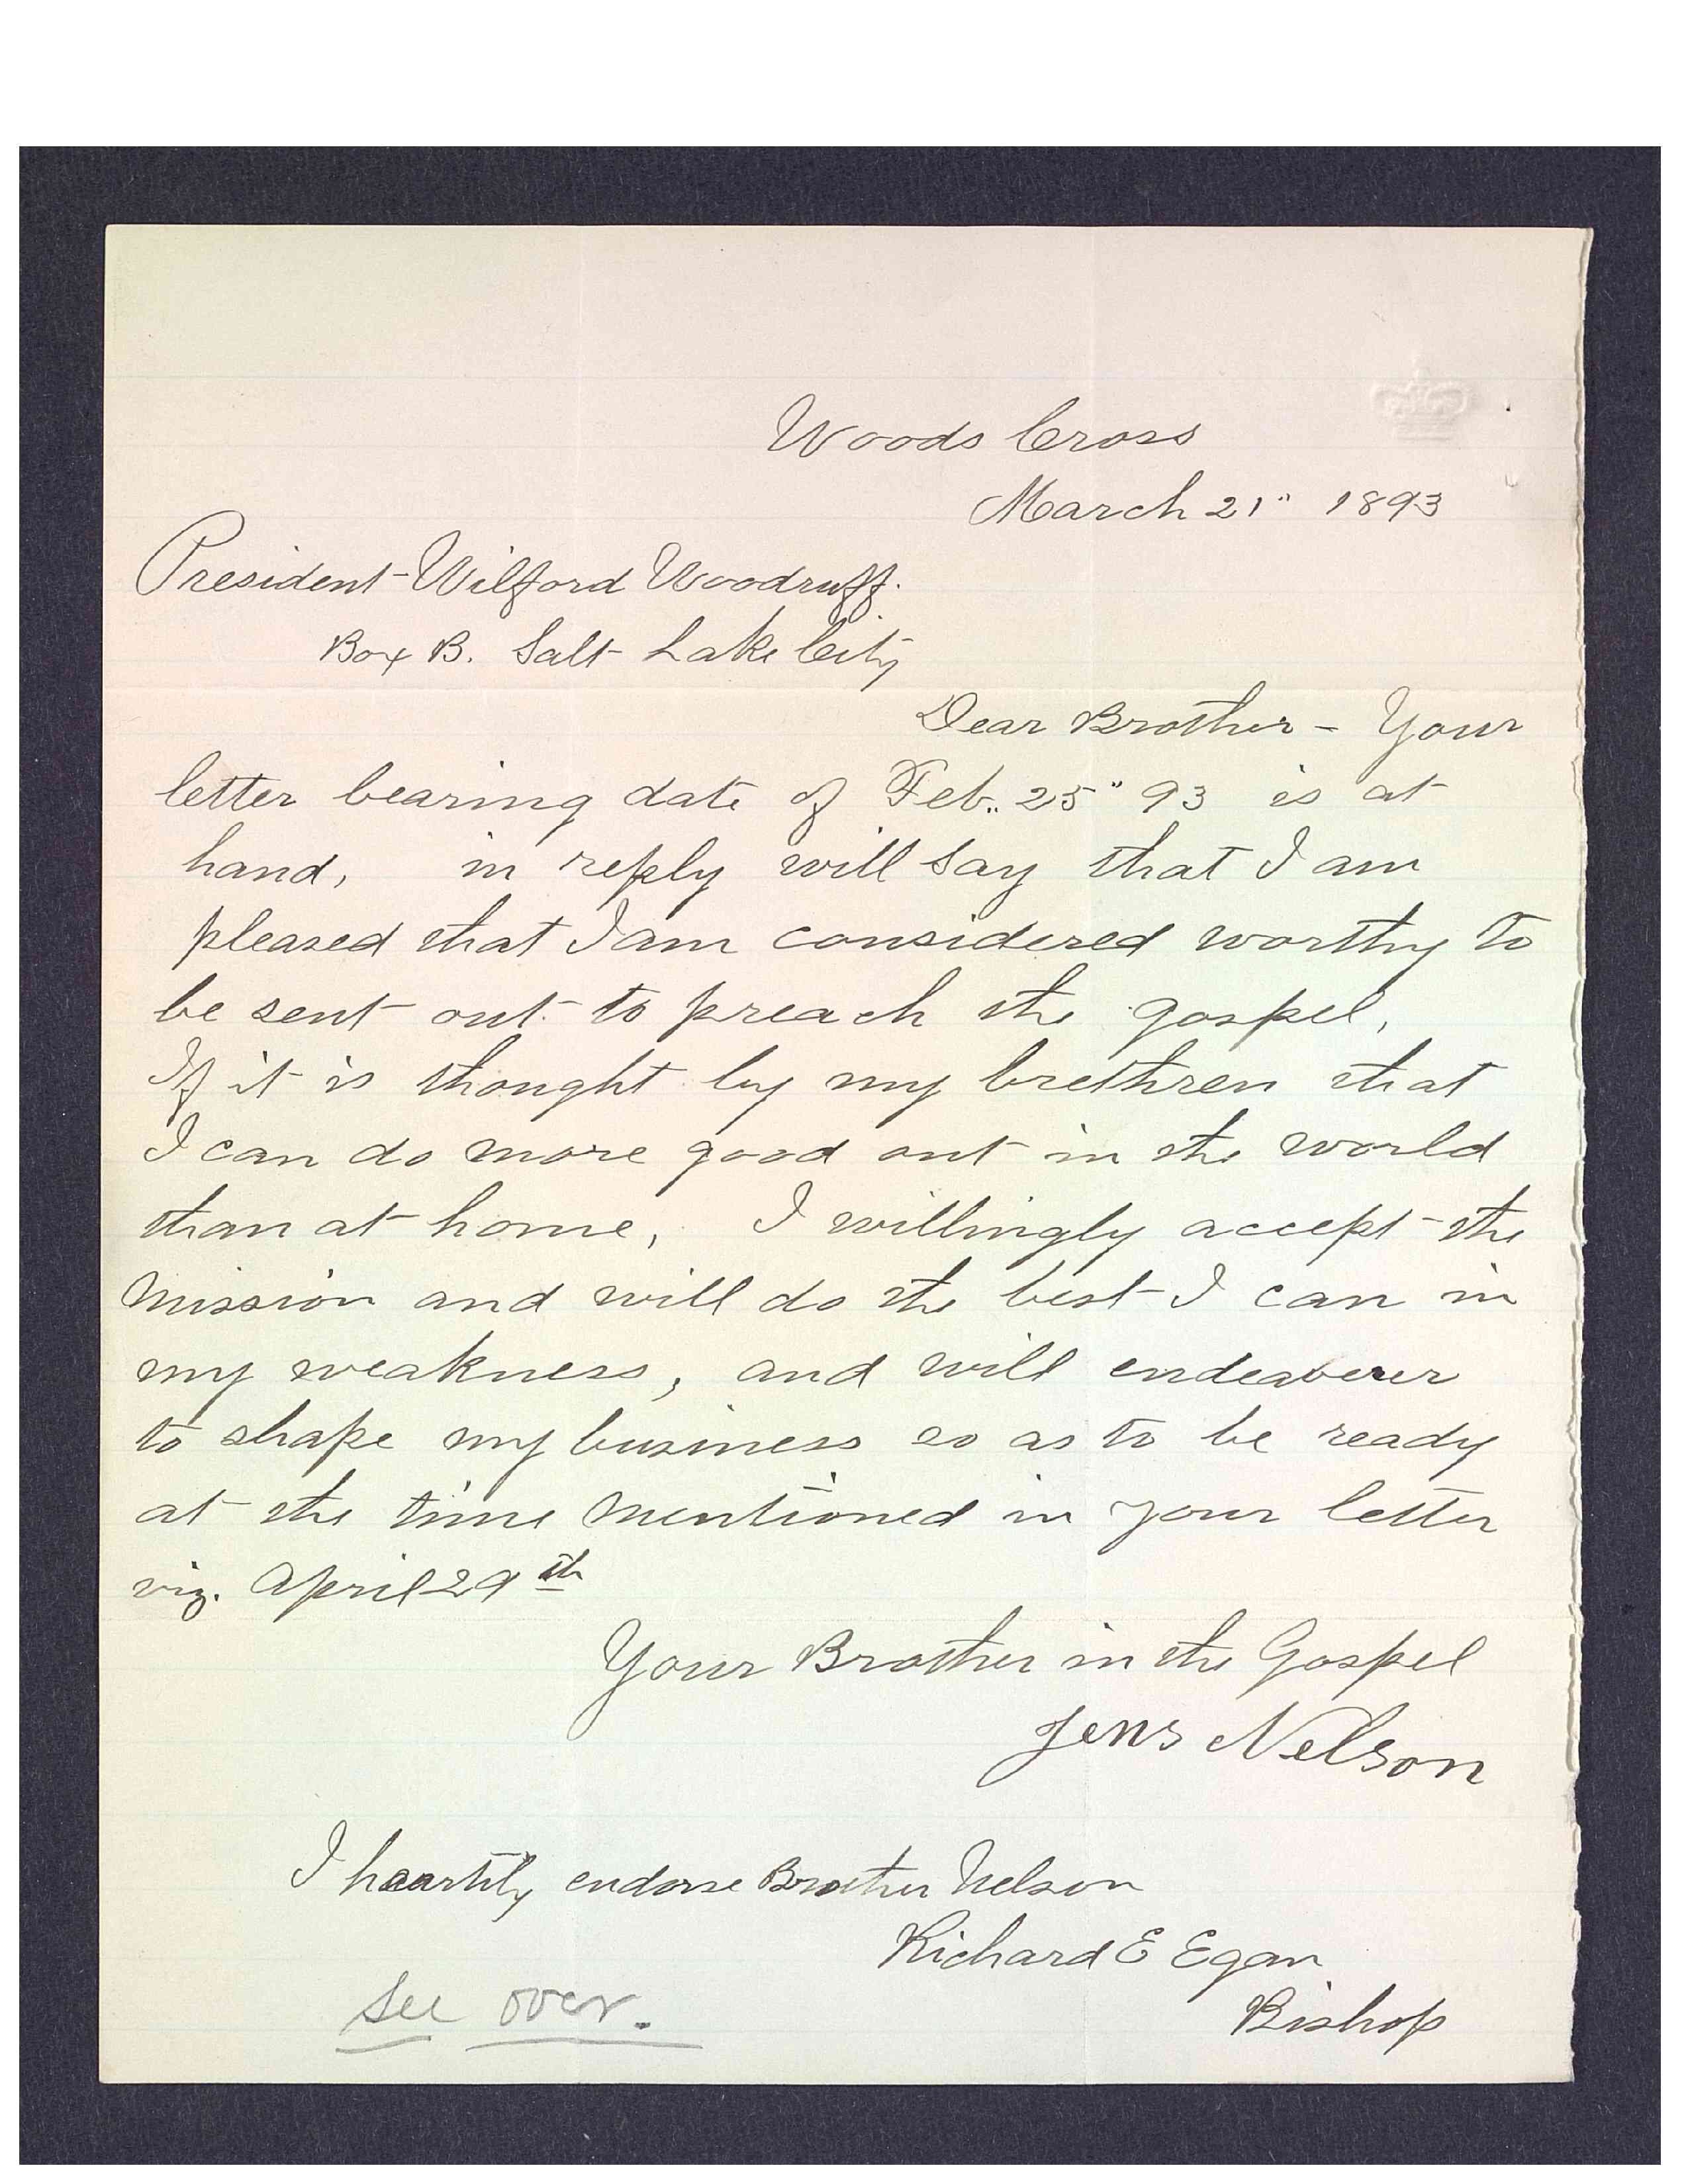 Woods Cross
March 21" 1893
President Wilford Woodruff.
Box B. Salt Lake City
Dear Brother - Your
letter bearing date of Feb. 25" 93 is at
hand, in reply will say that I am
pleased that I am considered worthy to
be sent out to preach the gospel,
If it is thought by my brethren that
I can do more good out in the world
than at home, I willingly accept the
mission and will do the best I can in
my weakness, and will endeaverer
to shape my business so as to be ready
at the time mentioned in your letter
viz. April 29th
Your Brother in the Gospel
Jens Nelson
I heartily endorse Brother Nelson
Richard E Egan
Bishop
See over.